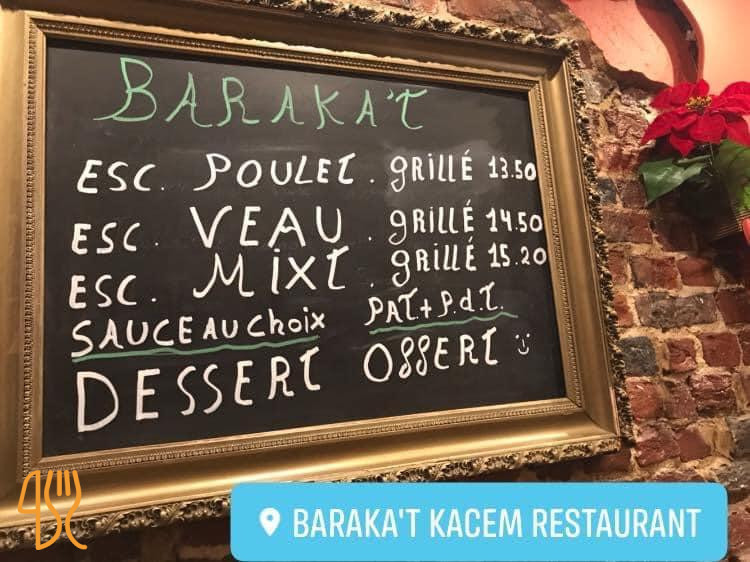 BARAKA'T
ESC. POULET. GRILLÉ 13.50
ESC. VEAU. GRILLÉ 14.50
ESC. MIXT. GRILLÉ 15.20
SAUCE AU Choix PAT.+ P.d.T.
DESSERT OFFERT
BARAKA'T KACEM RESTAURANT